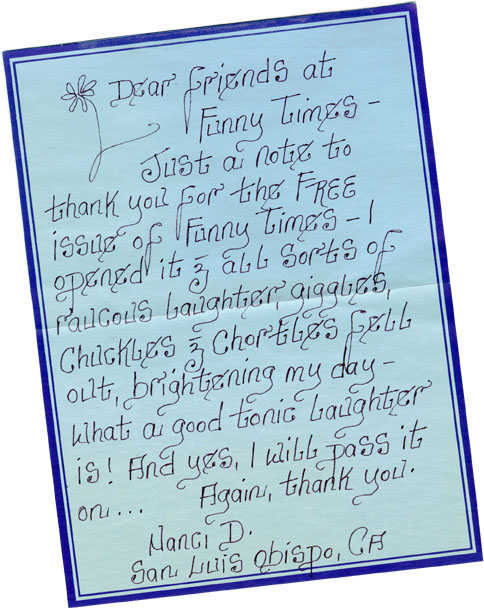 Dear friends at
Funny Times -
Just a note to
thank you for the FREE
issue of Funny Times - I
opened it & all sorts of
raucous laughter, giggles,
Chuckles & Chortles fell
out, brightening my day -
what a good tonic laughter
is! And yes, I will pass it
on... Again, thank you.
Nanci D.
San Luis Obispo, CA